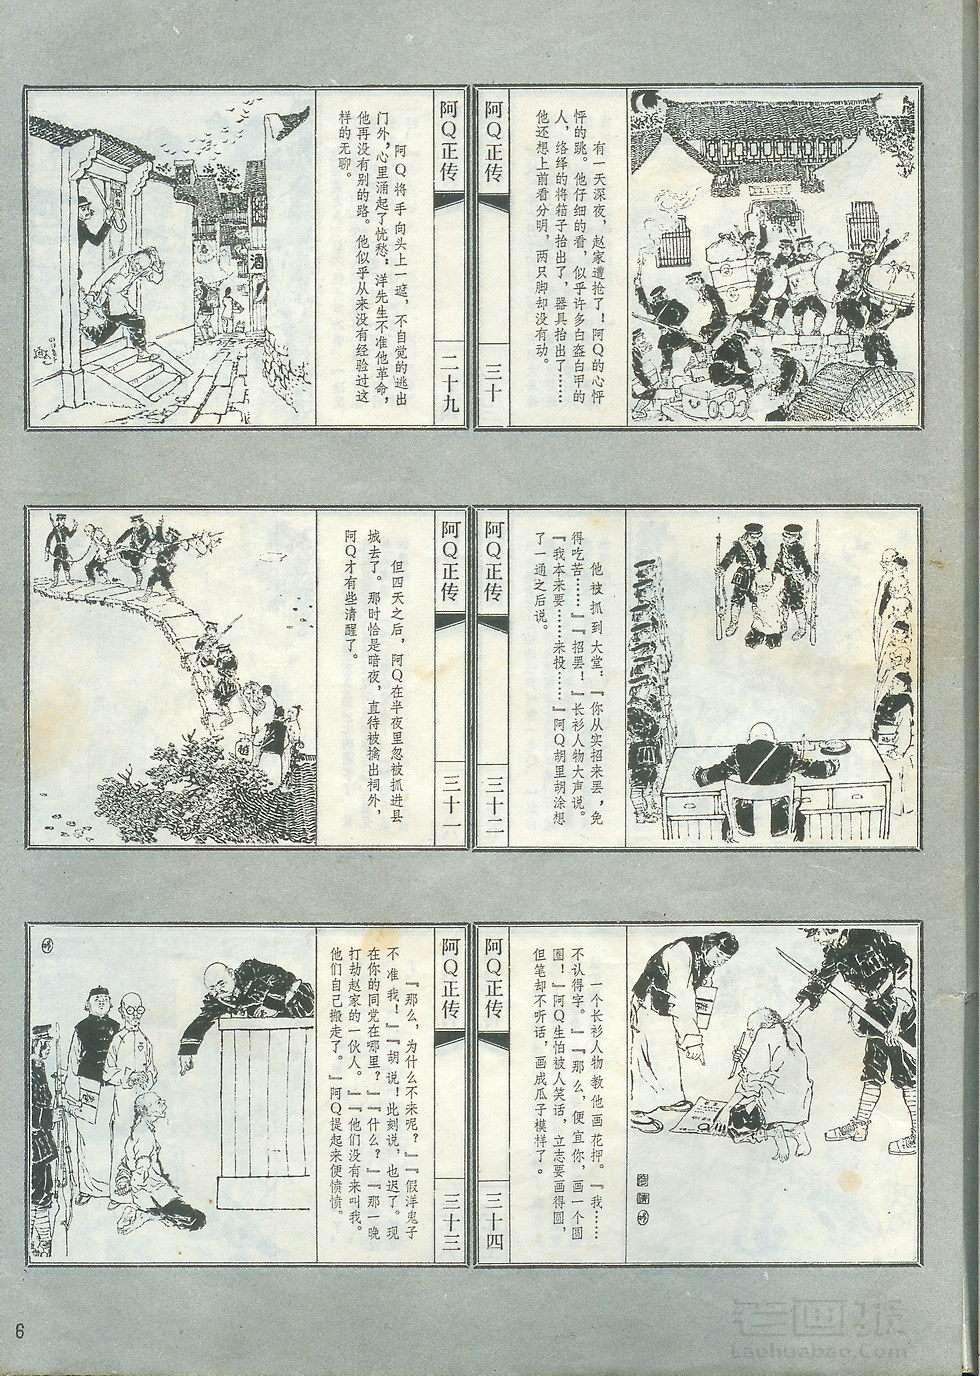 阿Q正传
二十九
阿Q将手向头上一遮，不自觉的逃出
门外，心里涌起了忧愁：洋先生不准他革命，
他再没有别的路。他似乎从来没有经验过这
样的无聊。
酒
阿Q正传
三十
有一天深夜，赵家遭抢了！阿Q的心怦
怦的跳。他仔细的看，似乎许多白盔白甲的
人，络绎的将箱子抬出了，器具抬出了……
他还想上前看分明，两只脚却没有动。
阿Q正传
三十一
但四天之后，阿Q在半夜里忽被抓进县
城去了。那时恰是暗夜，直待被擒出祠外，
阿Q才有些清醒了。
阿Q正传
三十二
他被抓到大堂：『你从实招来罢，免
得吃苦……』『招罢！』长衫人物大声说。
『我本来要……来投……』阿Q胡里胡涂想
了一通之后说。
阿Q正传
三十三
『那么，为什么不来呢？』『假洋鬼子
不准我！』『胡说！此刻说，也迟了。现
在你的同党在哪里？』『什么？』『那一晚
打劫赵家的一伙人。』『他们没有来叫我。
他们自己搬走了。』阿Q提起来便愤愤。
阿Q正传
三十四
一个长衫人物教他画花押。『我……
不认得字。』『那么，便宜你，画一个圆
圈！』阿Q生怕被人笑话，立志要画得圆，
但笔却不听话，画成瓜子模样了。
6
老画报
Laohuabao.Com